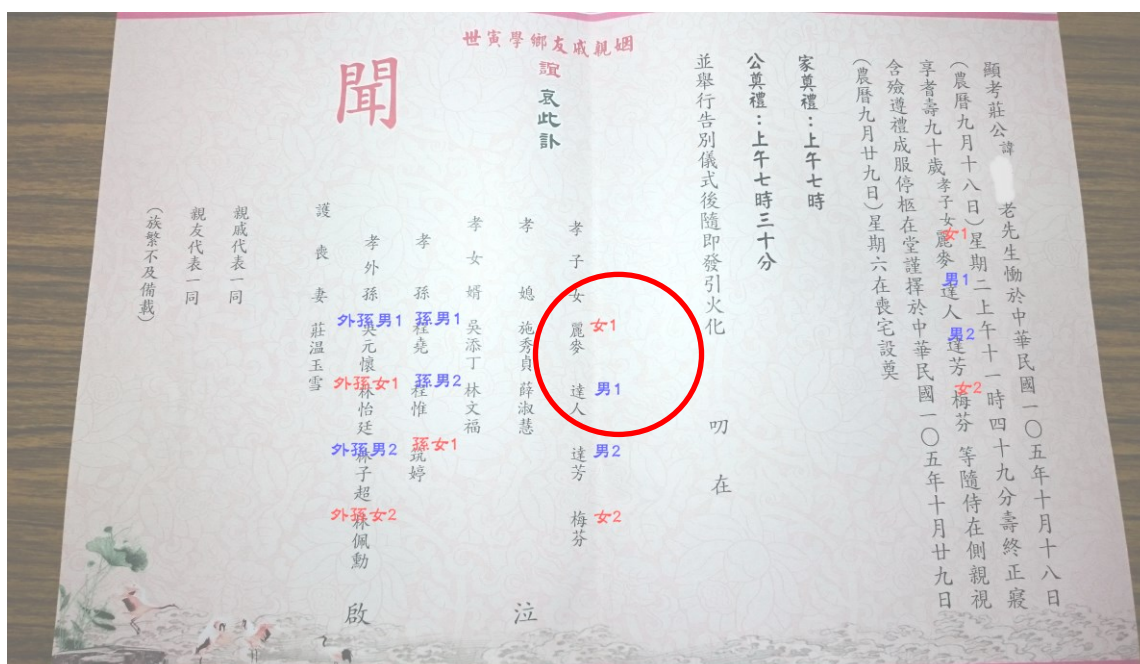 顯考莊公諱 老先生慟於中華民國一〇五年十月十八日
(農曆九月十八日)星期二上午十一時四十九分壽終正寢
享耆壽九十歲孝子女麗麥達人達芳梅芬等隨侍在側親視
女1
男1
男2
女2
含殮遵禮成服停柩在堂謹擇於中華民國一〇五年十月廿九日
(農曆九月廿九日)星期六在喪宅設奠
家奠禮:上午七時
公奠禮:上午七時三十分
並舉行告別儀式後隨即發引火化
叨在
世寅學鄉友戚親姻
誼
哀此訃
聞
孝子女 麗麥 達人 達芳 梅芬
女1
男1
男2
女2
孝媳 施秀貞 薛淑慧 泣
孝女婿 吳添丁 林文福
孝孫 程堯 程惟 筑婷
孫男1
孫男2
孫女1
孝外孫 吳元懷 林怡廷 林子超 林佩勳 啟
外孫男1
外孫女1
外孫男2
外孫女2
護喪妻 莊溫玉雪
親戚代表一同
親友代表一同
(族繁不及備載)